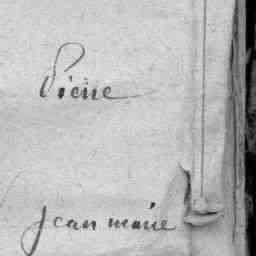 Pierre
jean marie